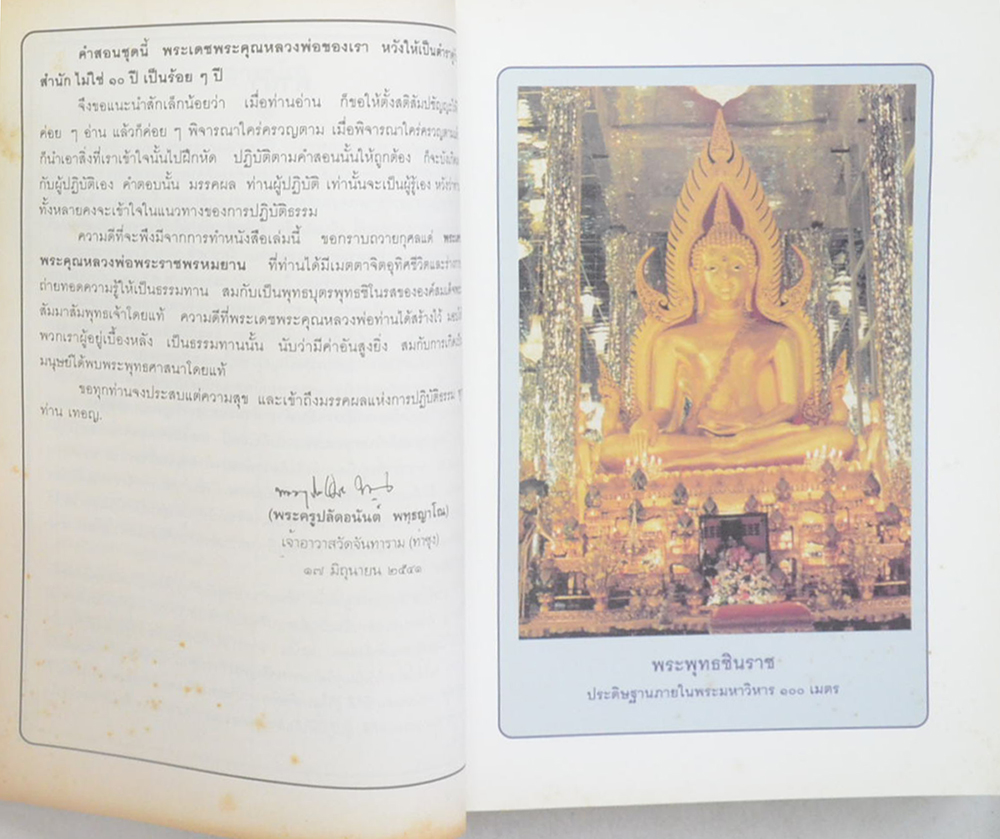 คำสอนชุดนี้ พระเดชพระคุณหลวงพ่อของเรา หวังให้เป็นตำรา
สำนัก ไม่ใช่ ๑๐ ปี เป็นร้อย ๆ ปี
จึงขอแนะนำสักเล็กน้อยว่า เมื่อท่านอ่าน ก็ขอให้ตั้งสติสัมปชัญญะ
ค่อย ๆ อ่าน แล้วก็ค่อย ๆ พิจารณาใคร่ครวญตาม เมื่อพิจารณาใคร่ครวญตาม
ก็นำเอาสิ่งที่เราเข้าใจนั้นไปฝึกหัด ปฏิบัติตามคำสอนนั้นให้ถูกต้อง ก็จะบังเกิด
กับผู้ปฏิบัติเอง คำตอบนั้น มรรคผล ท่านผู้ปฏิบัติ เท่านั้นจะเป็นผู้รู้เอง
ทั้งหลายคงจะเข้าใจในแนวทางของการปฏิบัติธรรม
ความดีที่จะพึงมีจากการทำหนังสือเล่มนี้ ขอกราบถวายกุศลแด่
พระคุณหลวงพ่อพระราชพรหมยาน ที่ท่านได้มีเมตตาจิตอุทิศชีวิตและร่างกาย
ถ่ายทอดความรู้ให้เป็นธรรมทาน สมกับเป็นพุทธบุตรพุทธชิโนรสขององค์สมเด็จพระ
สัมมาสัมพุทธเจ้าโดยแท้ ความดีที่พระเดชพระคุณหลวงพ่อท่านได้สร้างไว้
พวกเราผู้อยู่เบื้องหลัง เป็นธรรมทานนั้น นับว่ามีค่าอันสูงยิ่ง สมกับการเกิด
มนุษย์ได้พบพระพุทธศาสนาโดยแท้
ขอทุกท่านจงประสบแต่ความสุข และเข้าถึงมรรคผลแห่งการปฏิบัติธรรม
ท่าน เทอญ.
(พระครูปลัดอนันต์ พทฺธญาโณ)
เจ้าอาวาสวัดจันทาราม (ท่าซุง)
๑๗ มิถุนายน ๒๕๔๑
พระพุทธชินราช
ประดิษฐานภายในพระมหาวิหาร ๑๐๐ เมตร